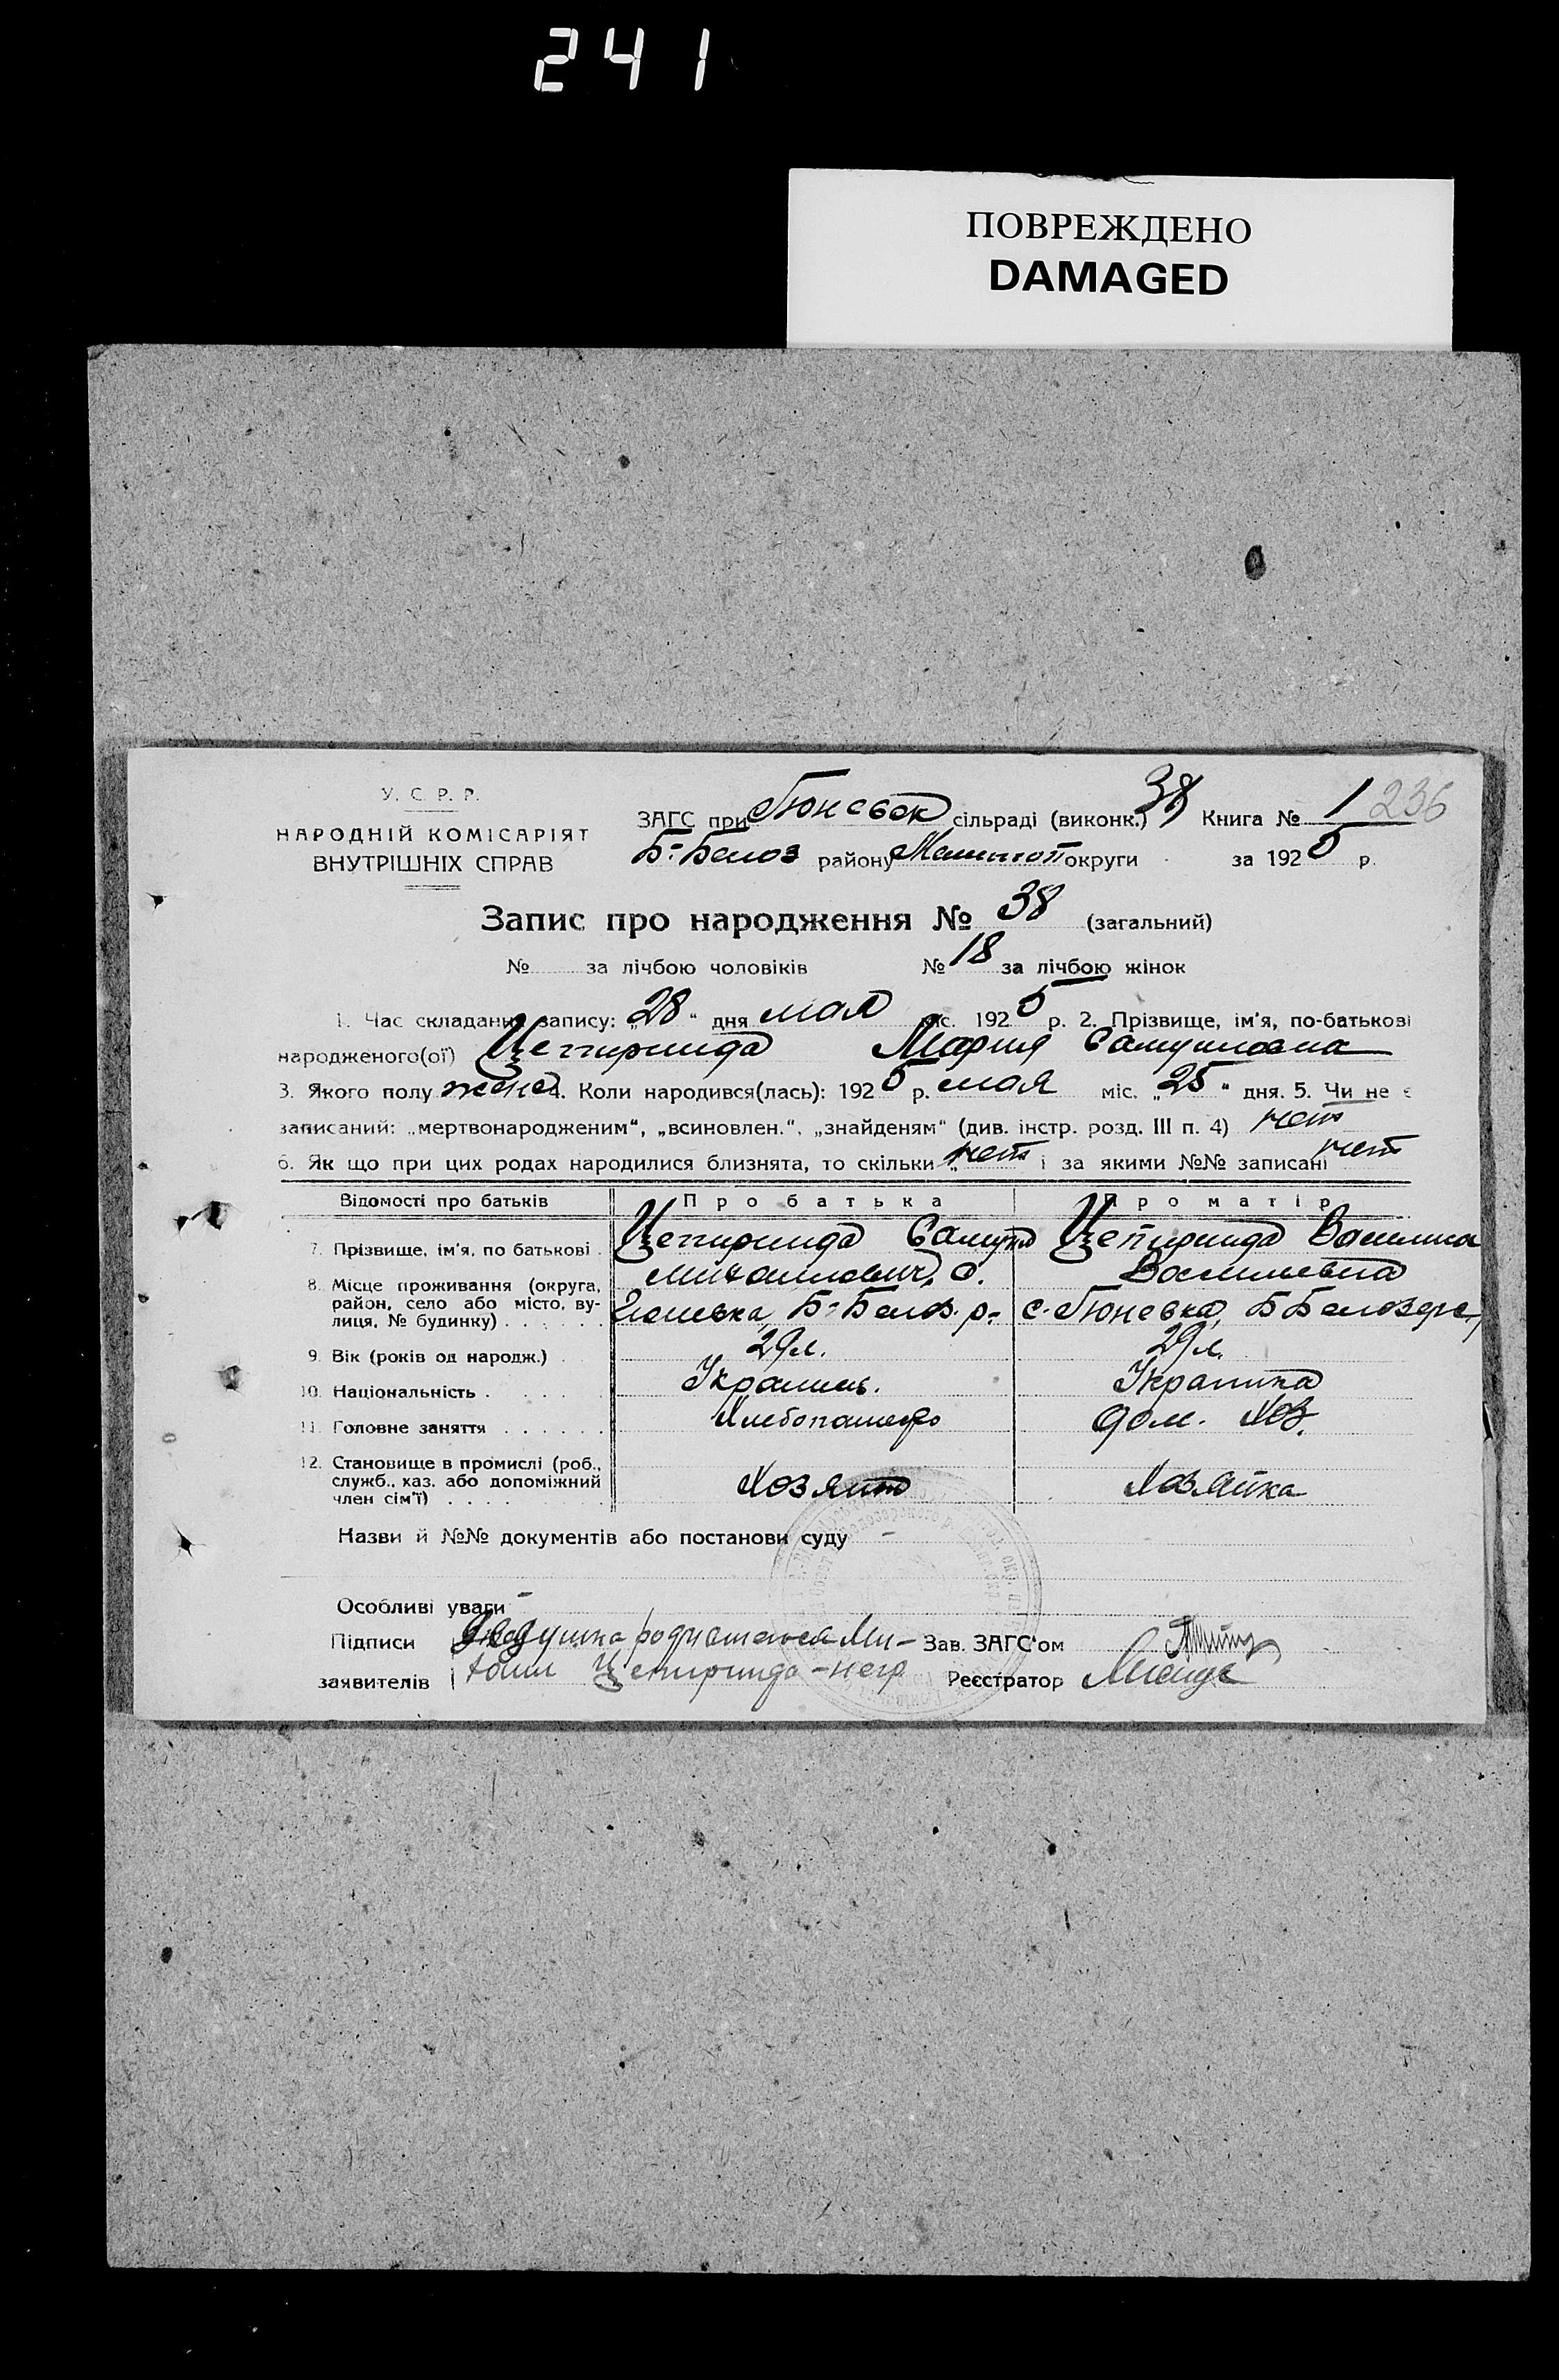 241
ПОВРЕЖДЕНО
DAMAGED
У. С. Р. Р.
НАРОДНІЙ КОМІСАРІЯТ
ВНУТРІШНІХ СПРАВ
ЗАГС при Гюневск сільраді (виконк.) 38 Книга № 1 236
Б-Белоз району округи за 1925 р.
Запис про народження № 38 (загальний)
№ за лічбою чоловіків № 18 за лічбою жінок
1. Час складання запису: „28“ дня мая міс. 1925 р. 2. Прізвище, ім’я, по-батькові
народженого(ої) Цепиринда Мария Самуиловна
3. Якого полу 4. Коли народився(лась): 1925 р. мая міс. „25“ дня. 5. Чи не є
записаний: „мертвонародженим“, „всиновлен.“, „знайденям“ (див. інстр. розд. III п. 4) нет
6. Як що при цих родах народилися близнята, то скільки „нет і за якими №№ записані нет
Відомості про батьків Про батька Про матір
7. Прізвище, ім’я, по батькові . Цепиринда Самуил Цепиринда
Михаилович, с. Васильевна
8. Місце проживання (округа,
район, село або місто, ву-
лиця, № будинку) . . . . . Гюневка, Б-Белоз. р- с. Гюневка, Б Белозерс
9. Вік (років од народж.) . 29 л. 29 л.
10. Національність . . . . Украинец. Украинка
11. Головне заняття . . . . . . Хлебопашество дом. хоз.
12. Становище в промислі (роб.,
служб., хаз. або допоміжний
член сім’ї) . . . . Хозяин Хозяйка
Назви й №№ документів або постанови суду –
Особливі уваги –
Підписи Дедушка Ми- Зав. ЗАГС’ом
заявителів хаил Цепиринда Реєстратор